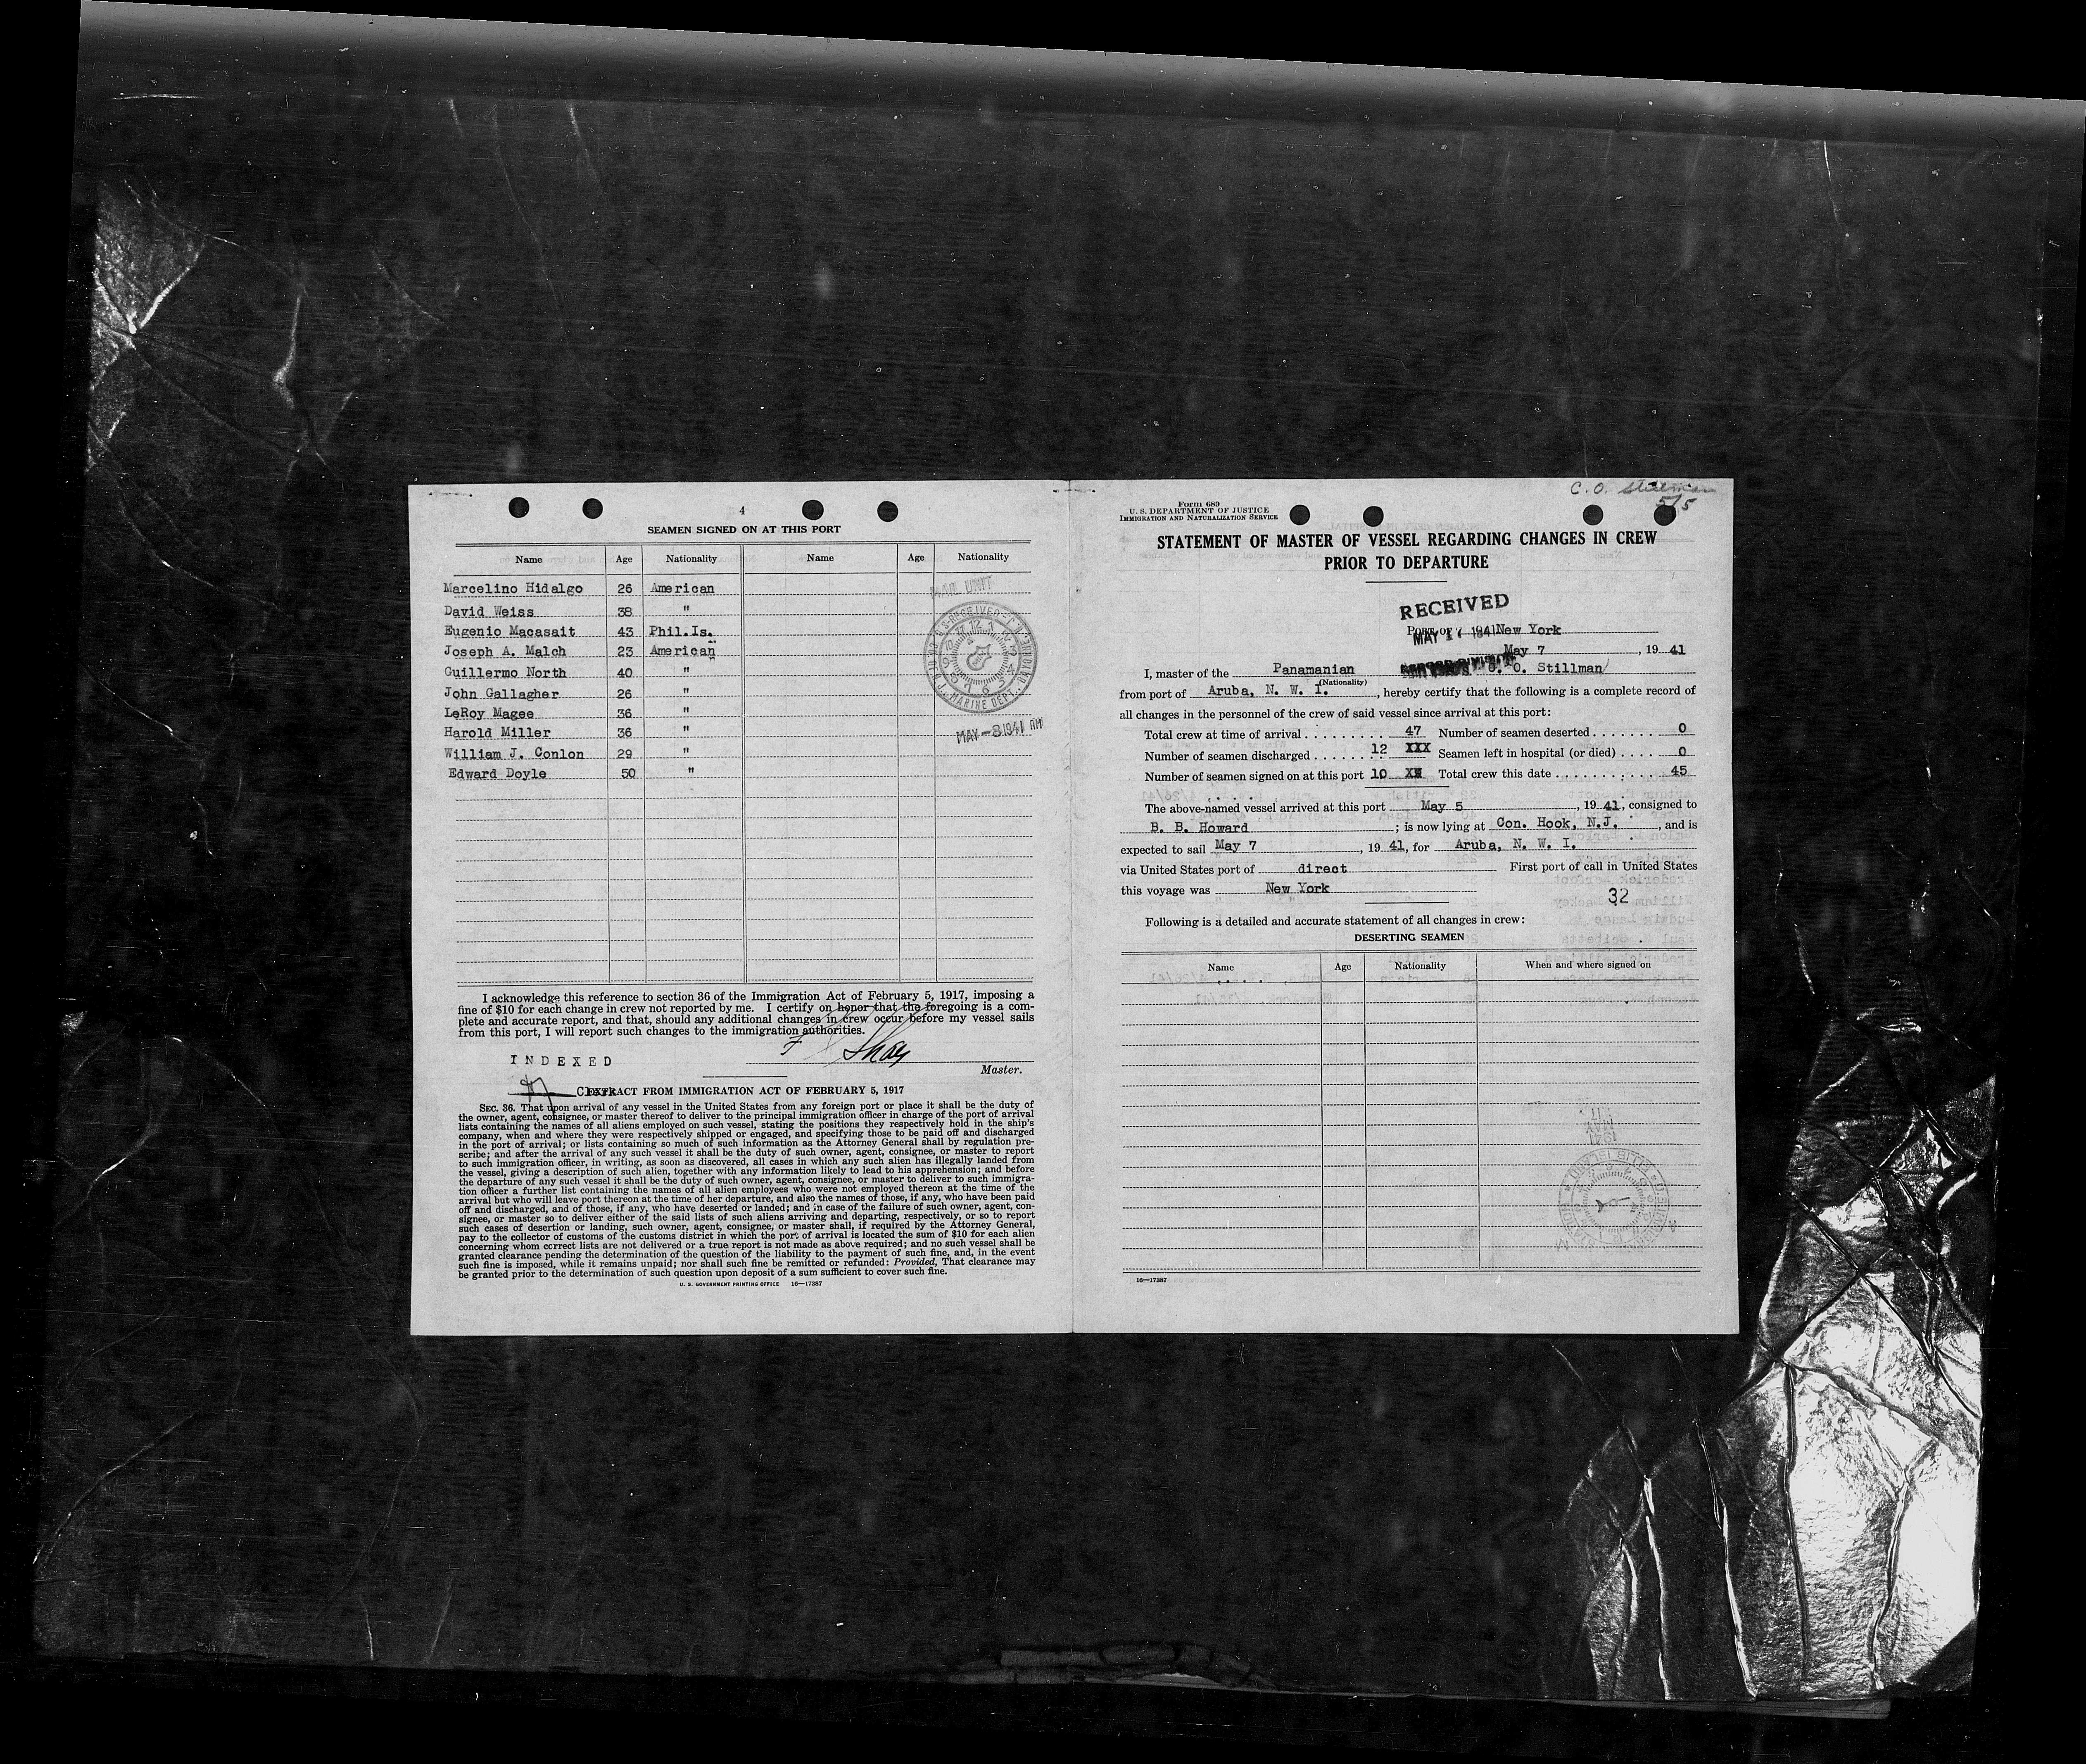 4
SEAMEN SIGNED ON AT THIS PORT
Name Age Nationality Name Age Nationality
Marcelino Hidalgo 26 American
David Weiss 38 "
Eugenio Macasait 43 Phil.Is.
Joseph A. Malch 23 American
Guillermo North 40 "
John Gallagher 26 "
LeRoy Magee 36 "
Harold Miller 36 "
William J. Conlon 29 "
Edward Doyle 50 "
MAIL UNIT
MARINE DEPT.
MAY -8 1941 AM
I acknowledge this reference to section 36 of the Immigration Act of February 5, 1917, imposing a
fine of $10 for each change in crew not reported by me. I certify on honor that the foregoing is a com-
plete and accurate report, and that, should any additional changes in crew occur before my vessel sails
from this port, I will report such changes to the immigration authorities.
INDEXED
Shay
Master.
EXTRACT FROM IMMIGRATION ACT OF FEBRUARY 5, 1917
SEC. 36. That upon arrival of any vessel in the United States from any foreign port or place it shall be the duty of
the owner, agent, consignee, or master thereof to deliver to the principal immigration officer in charge of the port of arrival
lists containing the names of all aliens employed on such vessel, stating the positions they respectively hold in the ship's
company, when and where they were respectively shipped or engaged, and specifying those to be paid off and discharged
in the port of arrival; or lists containing so much of such information as the Attorney General shall by regulation pre-
scribe; and after the arrival of any such vessel it shall be the duty of such owner, agent, consignee, or master to report
to such immigration officer, in writing, as soon as discovered, all cases in which any such alien has illegally landed from
the vessel, giving a description of such alien, together with any information likely to lead to his apprehension; and before
the departure of any such vessel it shall be the duty of such owner, agent, consignee, or master to deliver to such immigra-
tion officer a further list containing the names of all alien employees who were not employed thereon at the time of the
arrival but who will leave port thereon at the time of her departure, and also the names of those, if any, who have been paid
off and discharged, and of those, if any, who have deserted or landed; and in case of the failure of such owner, agent, con-
signee, or master so to deliver either of the said lists of such aliens arriving and departing, respectively, or so to report
such cases of desertion or landing, such owner, agent, consignee, or master shall, if required by the Attorney General,
pay to the collector of customs of the customs district in which the port of arrival is located the sum of $10 for each alien
concerning whom correct lists are not delivered or a true report is not made as above required; and no such vessel shall be
granted clearance pending the determination of the question of the liability to the payment of such fine, and, in the event
such fine is imposed, while it remains unpaid; nor shall such fine be remitted or refunded: Provided, That clearance may
be granted prior to the determination of such question upon deposit of a sum sufficient to cover such fine.
U. S. GOVERNMENT PRINTING OFFICE 16—17387
C. O. Stillman
5/5
Form 689
U. S. DEPARTMENT OF JUSTICE
IMMIGRATION AND NATURALIZATION SERVICE
STATEMENT OF MASTER OF VESSEL REGARDING CHANGES IN CREW
PRIOR TO DEPARTURE
RECEIVED
Port of New York
MAY 17 1941
May 7, 1941
I, master of the Panamanian C. O. Stillman
(Nationality)
from port of Aruba, N. W. I., hereby certify that the following is a complete record of
all changes in the personnel of the crew of said vessel since arrival at this port:
Total crew at time of arrival . . . . . . . . . 47 Number of seamen deserted . . . . . . . 0
Number of seamen discharged . . . . . . . 12 XXX Seamen left in hospital (or died) . . . . . 0
Number of seamen signed on at this port 10 XX Total crew this date . . . . . . . . . . . 45
The above-named vessel arrived at this port May 5, 1941, consigned to
B. B. Howard; is now lying at Con. Hook, N.J., and is
expected to sail May 7, 1941, for Aruba, N. W. I.
via United States port of direct First port of call in United States
this voyage was New York
32
Following is a detailed and accurate statement of all changes in crew:
DESERTING SEAMEN
Name Age Nationality When and where signed on
16—17387